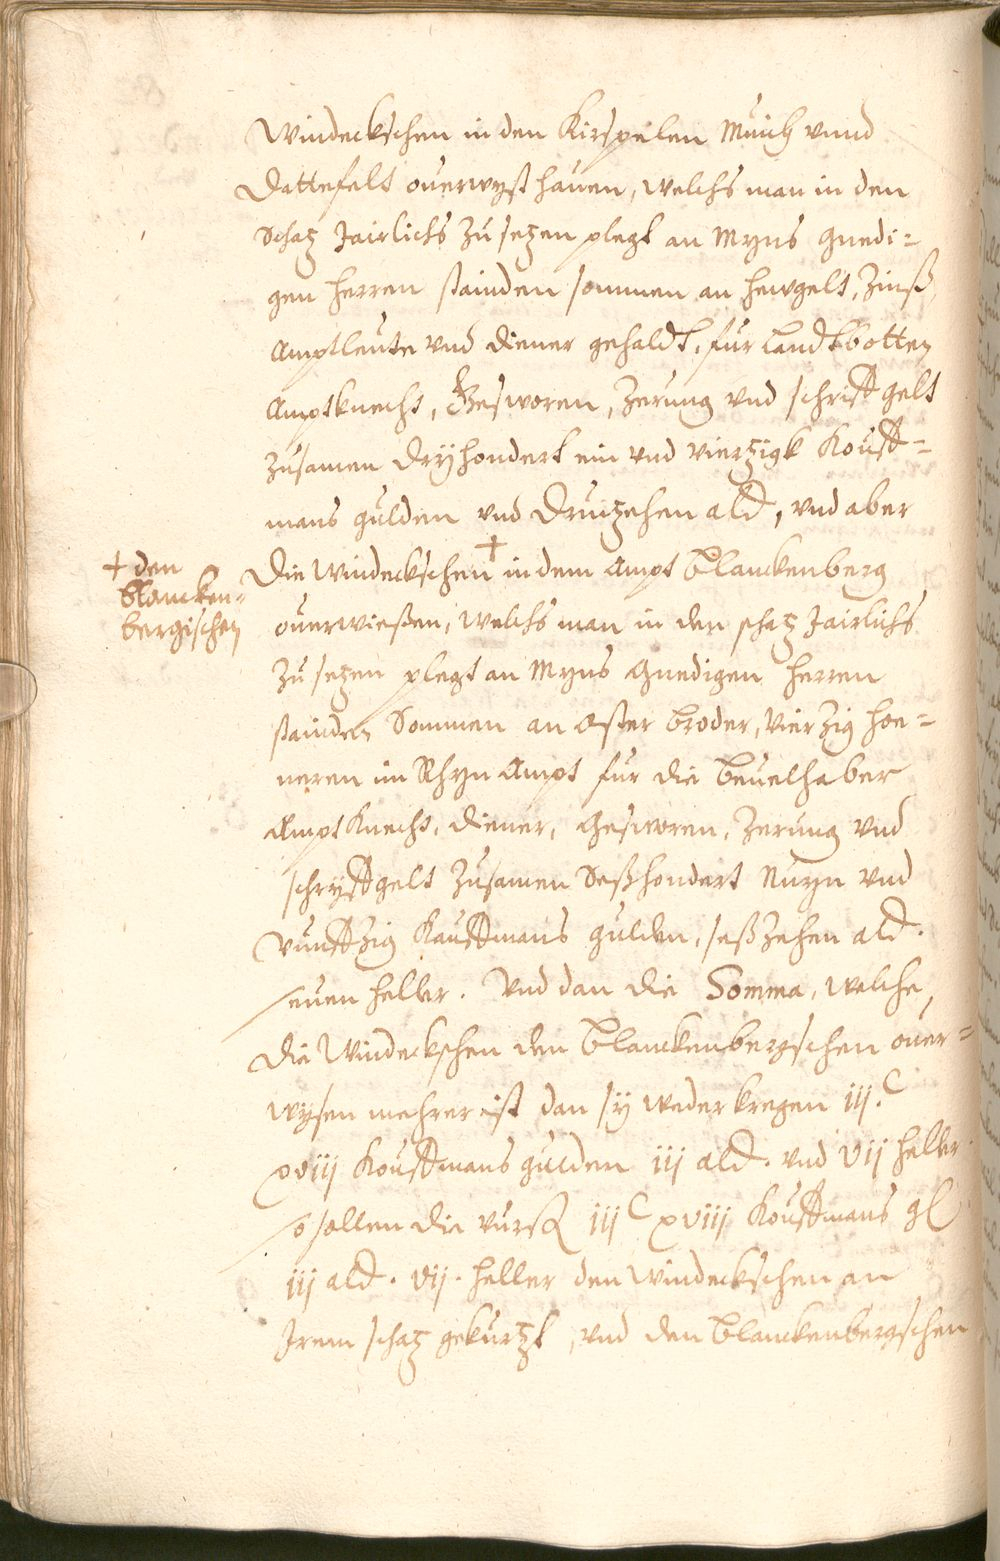 Windeckschen in den Kirspelen Much vnnd
Dattefelt ouerwyst hauen, welchs man in den
Schatz Jairlichs zu setzen plegt an Myns Gnedi=
gen Herren stainden sommen an hewgelt, Zinß
Amptleute vnd diener gehaldt, fur Landtbotten
Amptknecht, Gesworen, Zerung vnd schrifftgelt
Zusamen Dryhondert ein vnd viertzigk Kouff=
mans gulden vnd Druitzehen ald, vnd aber
Die Windeckschen + in dem Ampt Blanckenberg
+ den
Blancken=
bergischen
ouerwießen, welchs man in den schatz Jairlichs
Zu setzen plegt an Myns Gnedigen Herren
stainden Sommen an Oster broder, vierzig hoe=
neren im Rhyn Ampt fur die Beuelhaber
Ampt Knecht, diener, Gesworen, Zerung vnd
schryfftgelt Zusamen Seßhondert Nuyn vnd
vunfftzig Kauffmans gulden, seßzehen ald.
seuen heller. Vnd dan die Somma, welche
die Windeckschen den Blanckenbergschen ouer=
wysen mehrer ist dan sy weder kregen iij.C
xviij Kouffmans gulden iij ald. vnd vij heller
so sollen die vurß iijC xviij Kouffmans gl
iij ald. vij. heller den Windeckschen an
Jrem schatz gekurtzt, vnd den Blanckenbergschen